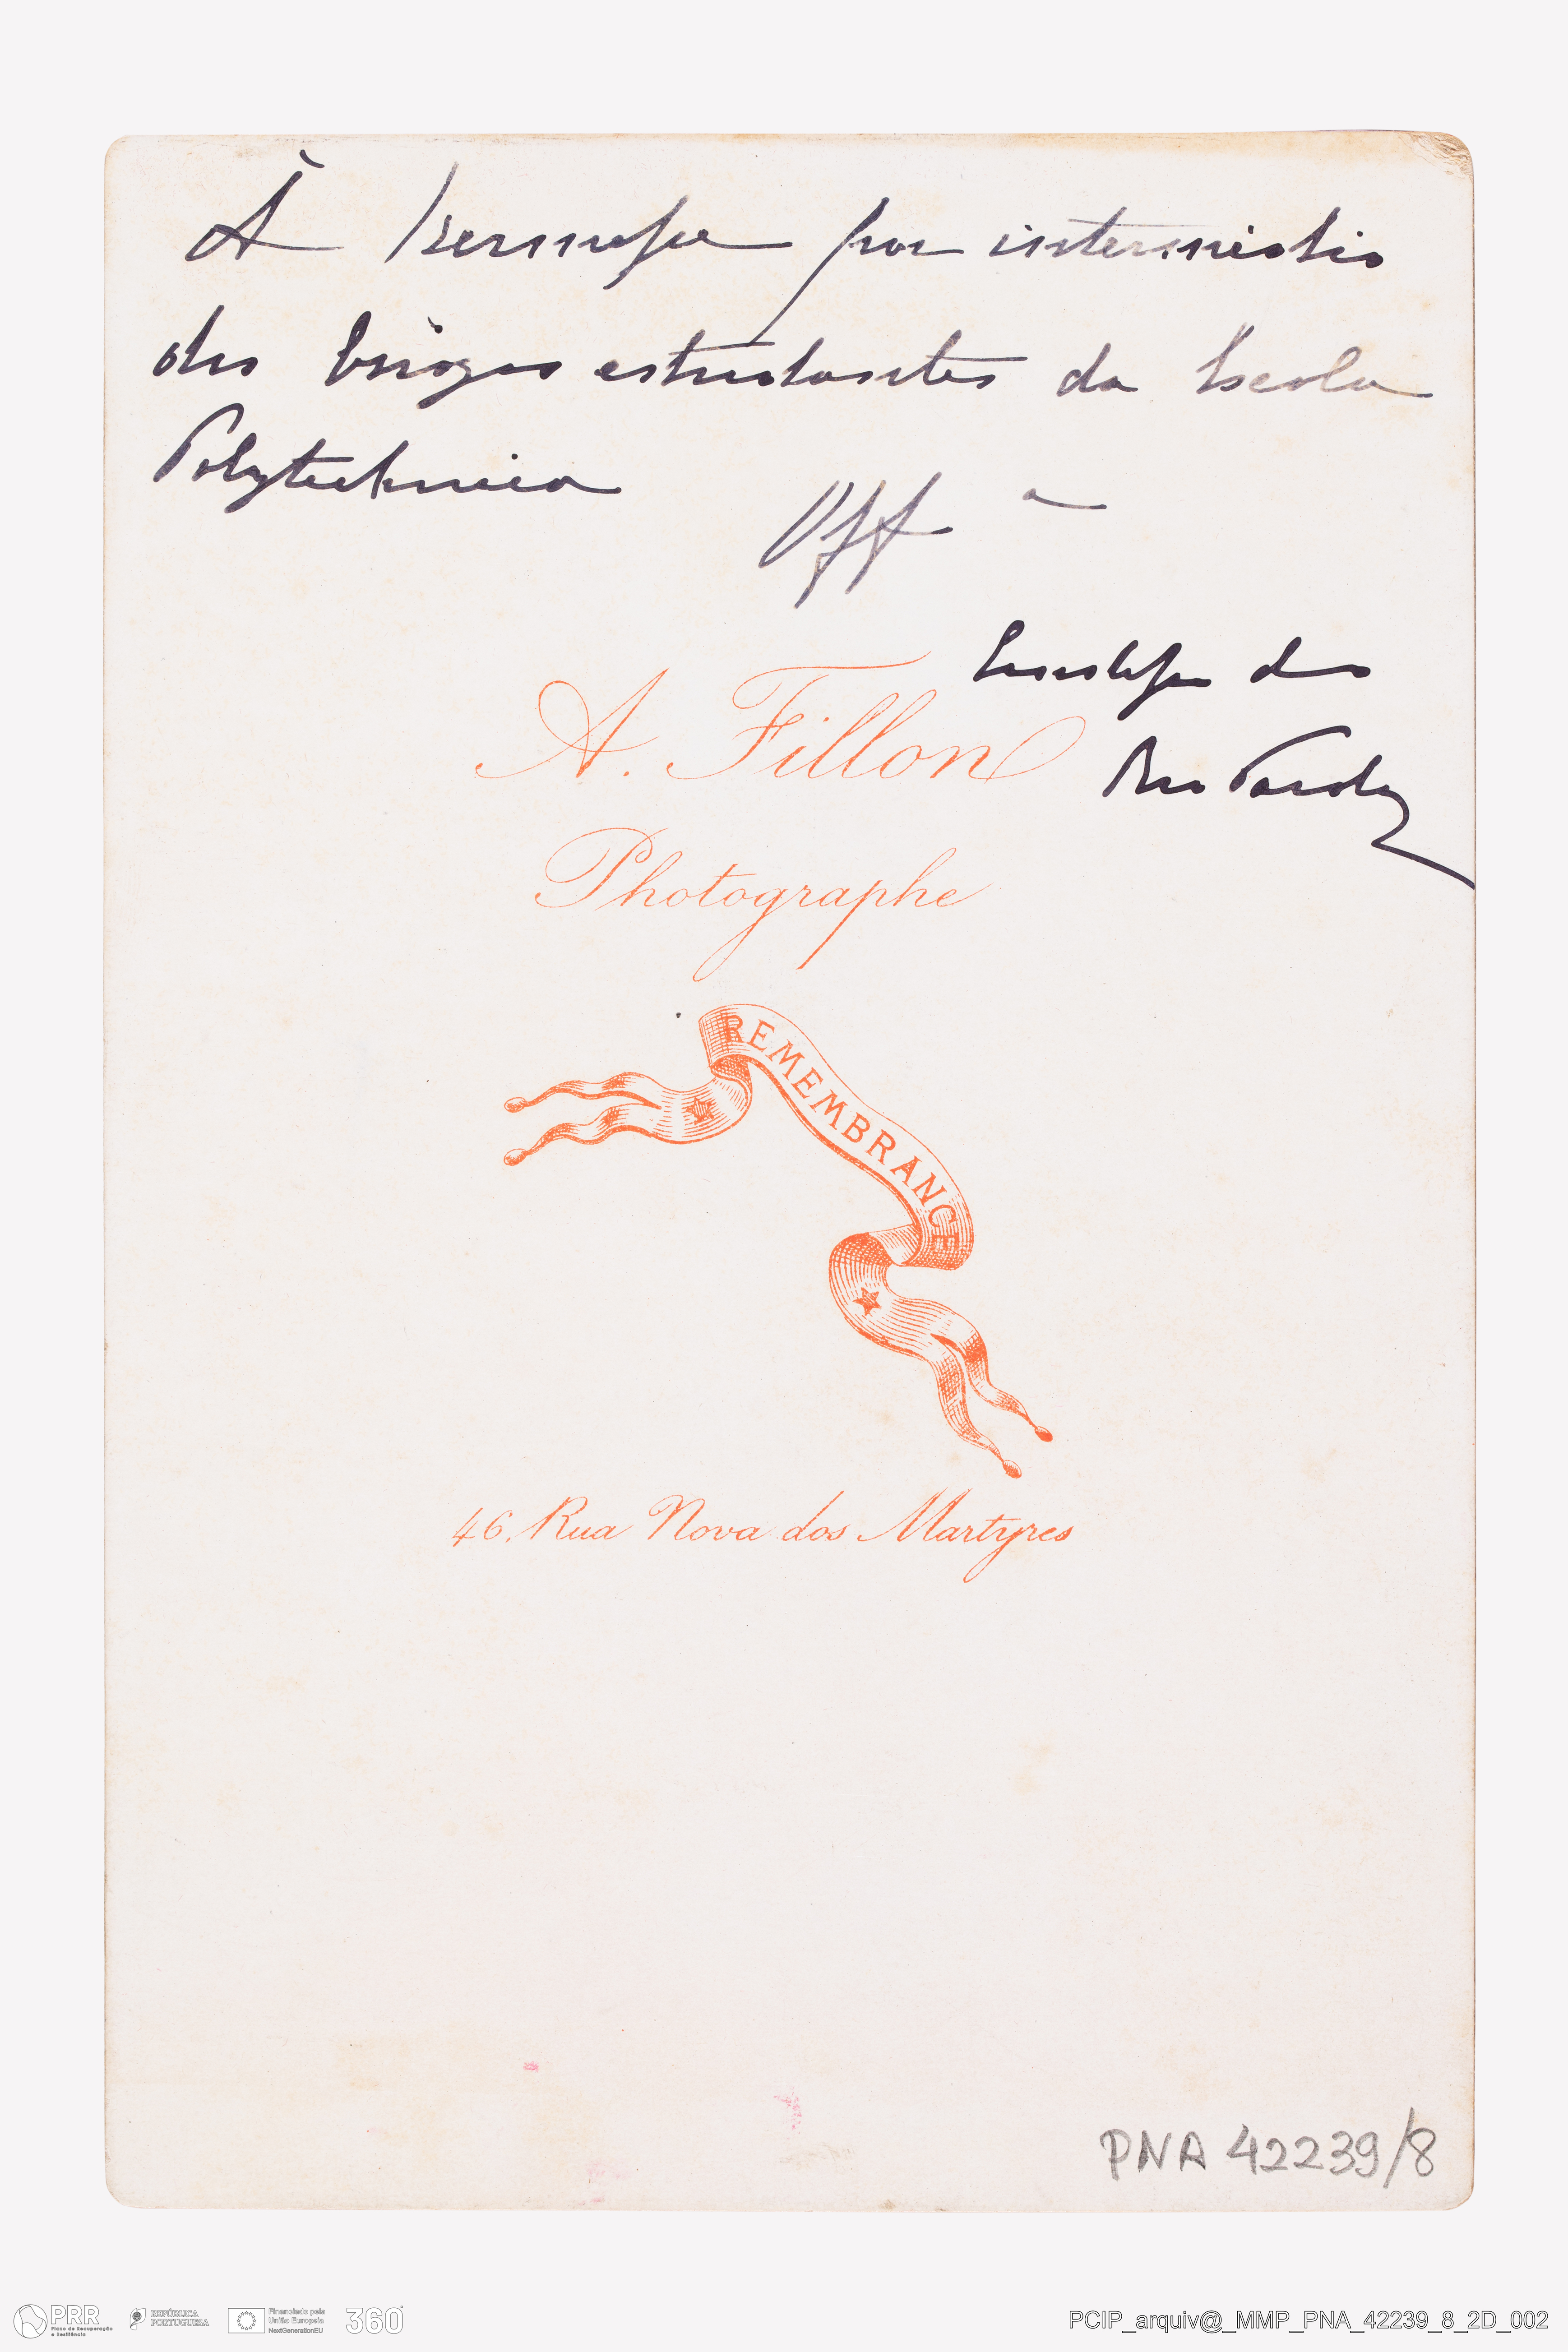 À Kermesse por intermedio
dos briosos estudantes da Escola
Polytechnica
Off a
Condessa do
Rio Pardo
A. Fillon
Photographe
REMEMBRANCE
46, Rua Nova dos Martyres
PNA 42239/8
PRR
Plano de Recuperação
e Resiliência
REPÚBLICA
PORTUGUESA
Financiado pela
União Europeia
NextGenerationEU
360°
PCIP_arquiv@_MMP_PNA_42239_8_2D_002